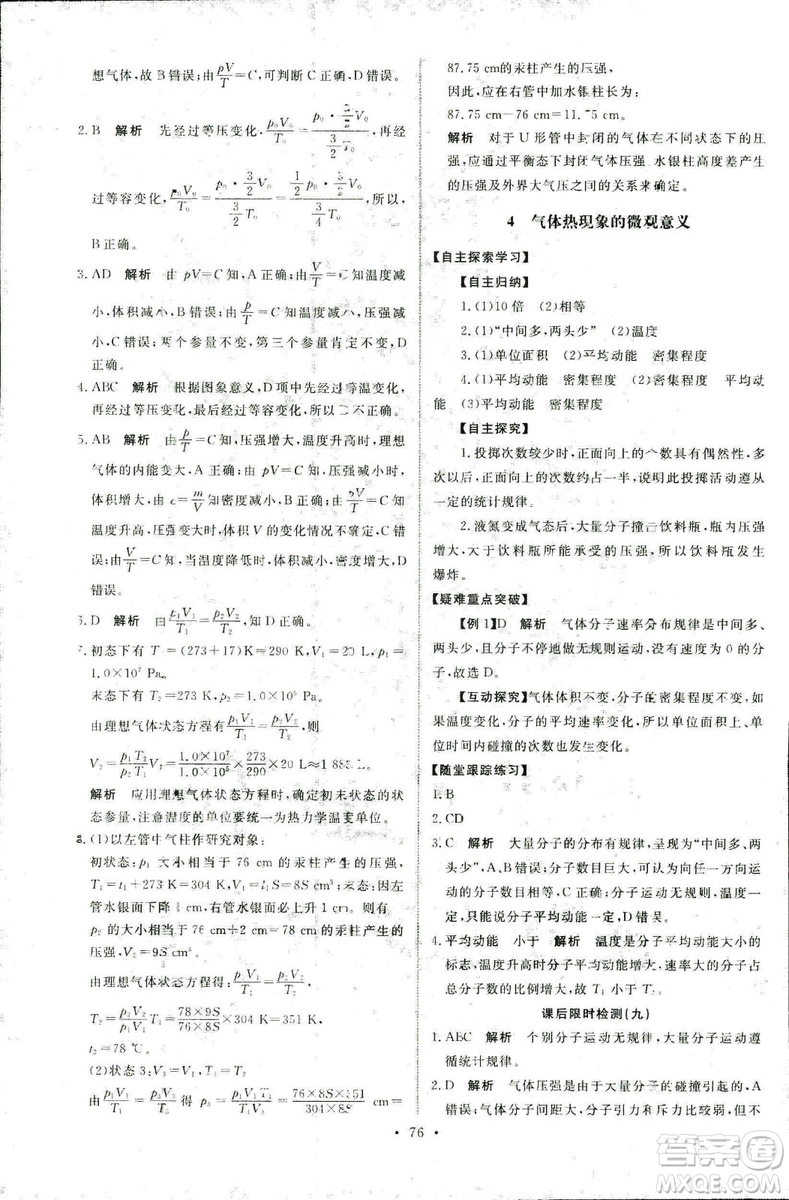 想气体,故 B 错误;由pV/T=C,可判断 C 正确,D 错误。
2. B 解析 先经过等压变化,p₀V₀/T₀=p₀·(3/2)V₀/((3/2)T₀),再经
过等容变化,p₀·(3/2)V₀/((3/2)T₀)=(1/2)p₀·(3/2)V₀/T₀,所以,
B 正确。
3. AD 解析 由 pV=C 知,A 正确;由V/T=C知温度减
小,体积减小,B 错误;由p/T=C知,温度减小,压强减小,
C 错误;两个参量不变,第三个参量不变,D
正确。
4. ABC 解析 根据图象意义,D 项中先经过等温变化,
再经过等压变化,最后经过等容变化,所以 D 不正确。
5. AB 解析 由p/T=C,压强增大,温度升高时,理想
气体的内能变大,A、B 正确;压强增大时,体积可能减
小,由
温度升高,压强增大时,体积 V 的变化不能确定,C 错
误;由pV/T=C,当温度降低时,体积减小,密度增大,D
错误。
6. D 解析 由p₁V₁/T₁=p₂V₂/T₂知,D 正确。
7. 初态下有 T₁=(273+17)K=290 K,V₁=20 L,p₁=
1.0×10⁷ Pa
末态下有 T₂=273 K,p₂=1.0×10⁵ Pa
由理想气体状态方程有p₁V₁/T₁=p₂V₂/T₂,则
V₂=p₁T₂/(p₂T₁)V₁=1.0×10⁷/1.0×10⁵×273/290×20 L≈1 883 L
解析 应用理想气体状态方程时,确定初末状态的状
态参量,注意温度的单位要为热力学温度的单位。
8. (1)以左管中气柱作研究对象:
初状态:p₁ 大小相当于 76 cm 的汞柱产生的压强,
T₁=t₁+273 K=304 K,V₁=8S;末态:因左
管水银面下降 1 cm,右管水银面必上升 1 cm,所以
p₂ 的大小相当于 76 cm+2 cm=78 cm 的汞柱产生的
压强,V₂=9S
由理想气体状态方程得:p₁V₁/T₁=p₂V₂/T₂
T₂=p₂V₂/(p₁V₁)T₁=78×9S/76×8S×304 K=351 K,
t₂=78 ℃
(2)状态 3:V₃=9S,T₃=T₂=351 K
由p₁V₁/T₁=p₃V₃/T₃得 p₃=p₁V₁T₃/(V₃T₁)=76×8S×351/304×9S cm=
87.75 cm的汞柱产生的压强
因此,应在右管中加水银柱长为:
87.75 cm−76 cm=11.75 cm。
解析 对于 U 形管中封闭的气体在不同状态下的压
强,应通过平衡态下封闭气体压强、水银柱高度差产生
的压强及外界大气压之间的关系来确定。
4 气体热现象的微观意义
【自主探索学习】
【自主归纳】
1. (1)10 倍 (2)相等
2. (1)“中间多,两头少” (2)温度
3. (1)单位面积 (2)平均动能 密集程度
4. (1)平均动能 密集程度 (2)密集程度 平均动
能 (3)平均动能 密集程度
【自主探究】
1. 投掷次数较少时,正面向上的个数具有偶然性。次
数多,正面向上的次数约占一半,说明投掷活动遵从
一定的统计规律。
2. 液氮变成气态后,大量分子撞击饮料瓶,瓶内压强
增大,大于饮料瓶所能承受的压强,所以饮料瓶发生
爆炸。
【疑难重点突破】
【例 1】D 解析 气体分子速率分布规律是中间多、
两头少,且分子不停地做无规则运动,没有速度为 0 的分
子,故选 D。
【互动探究】气体体积不变,分子的密集程度不变,如
果温度变化,分子的平均速率变化,分子的平均动能变化,
单位时间内碰撞的次数也发生变化。
【随堂跟踪练习】
1. B
2. CD
3. C 解析 大量分子的分布有规律,呈现“中间多、两
头少”,A、B 错误;分子数目巨大,可认为各方向运动
的分子数目相等,C 正确;分子运动无规则,速率不
定,只能说分子平均动能一定,D 错误。
4. 平均动能 小于 解析 温度是分子平均动能大小的
标志,温度升高时分子平均动能增大,速率大的分子占
总数的比例增大,故 T₁ 小于 T₂。
课后限时检测(九)
1. ABC 解析 个别分子运动无规律,大量分子运动遵
循统计规律。
2. D 解析 气体压强是由于分子的碰撞引起的,A 错
误;气体分子间距大,分子间相互作用力比较弱,B 错
76